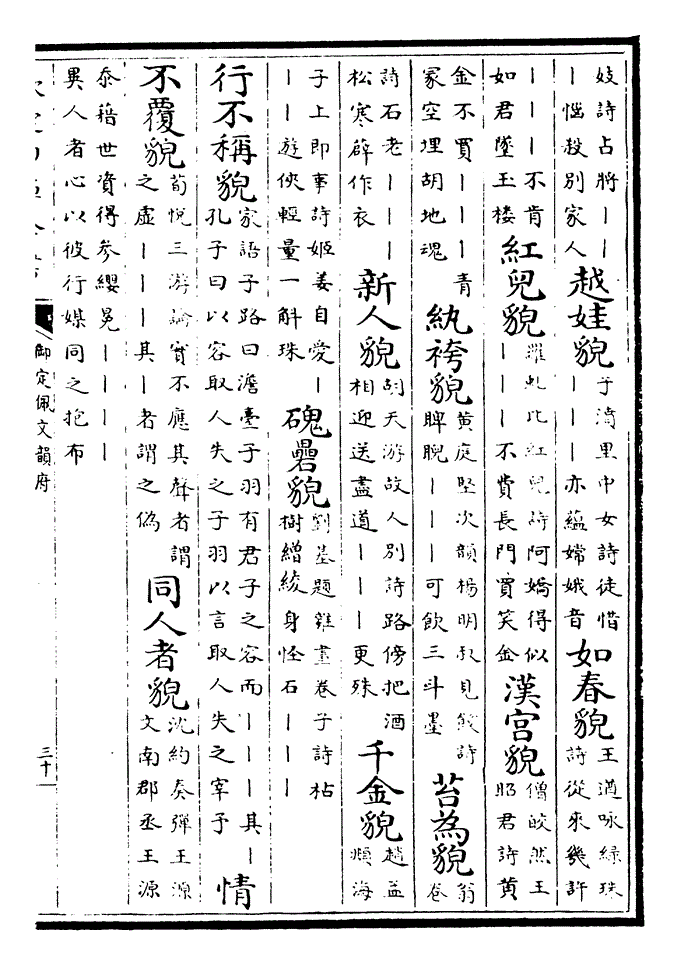 妓詩占將｜｜
｜惱殺別家人
越娃貌
于漪里中女詩徒惜
｜｜｜亦蘊嫦娥音
如春貌
王遒咏緑珠
詩從來幾許
｜｜｜不肯
如君墜玉楼
紅兒貌
羅虬比紅兒詩阿嬌得似
｜｜｜不費長門買笑金
漢宫貌
僧皎然王
昭君詩黄
金不買｜｜｜｜青
冡空埋胡地魂
紈袴貌
黄庭堅次韻楊明叔見餞詩
睥睨｜｜｜可飲三斗墨
苔為貌
翁
卷
詩石老｜｜｜
松寒薜作衣
新人貌
胡天游故人別詩路傍把酒
相迎送盡道｜｜｜更殊
千金貌
趙益
順海
子上即事詩姬姜自愛｜
｜｜遊俠輕量一斛珠
磈礨貌
劉基題雜畫卷子詩枯
樹繒綾身怪石｜｜｜
行不稱貌
家語子路曰澹臺子羽有君子之容而｜｜｜其｜
孔子曰以容取人失之子羽以言取人失之宰予
情
不覆貌
荀悦三游論實不應其聲者謂
之虚｜｜｜其｜者謂之偽
同人者貌
沈約奏彈王源
文南郡丞王源
忝藉世資得參纓冕｜｜｜｜
異人者心以彼行媒同之抱布
御定佩文韻府
三十